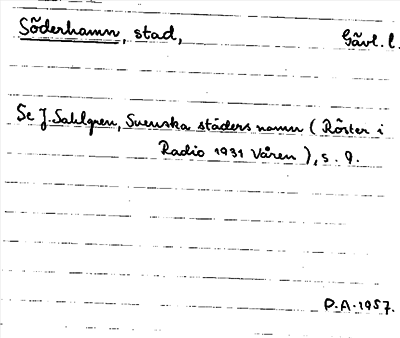 Söderhamn, stad, Gävl. l.
Se J. Sahlgren, Svenska städers namn (Röster i
Radio 1931 Våren), s. 9.
P.A. 1957.